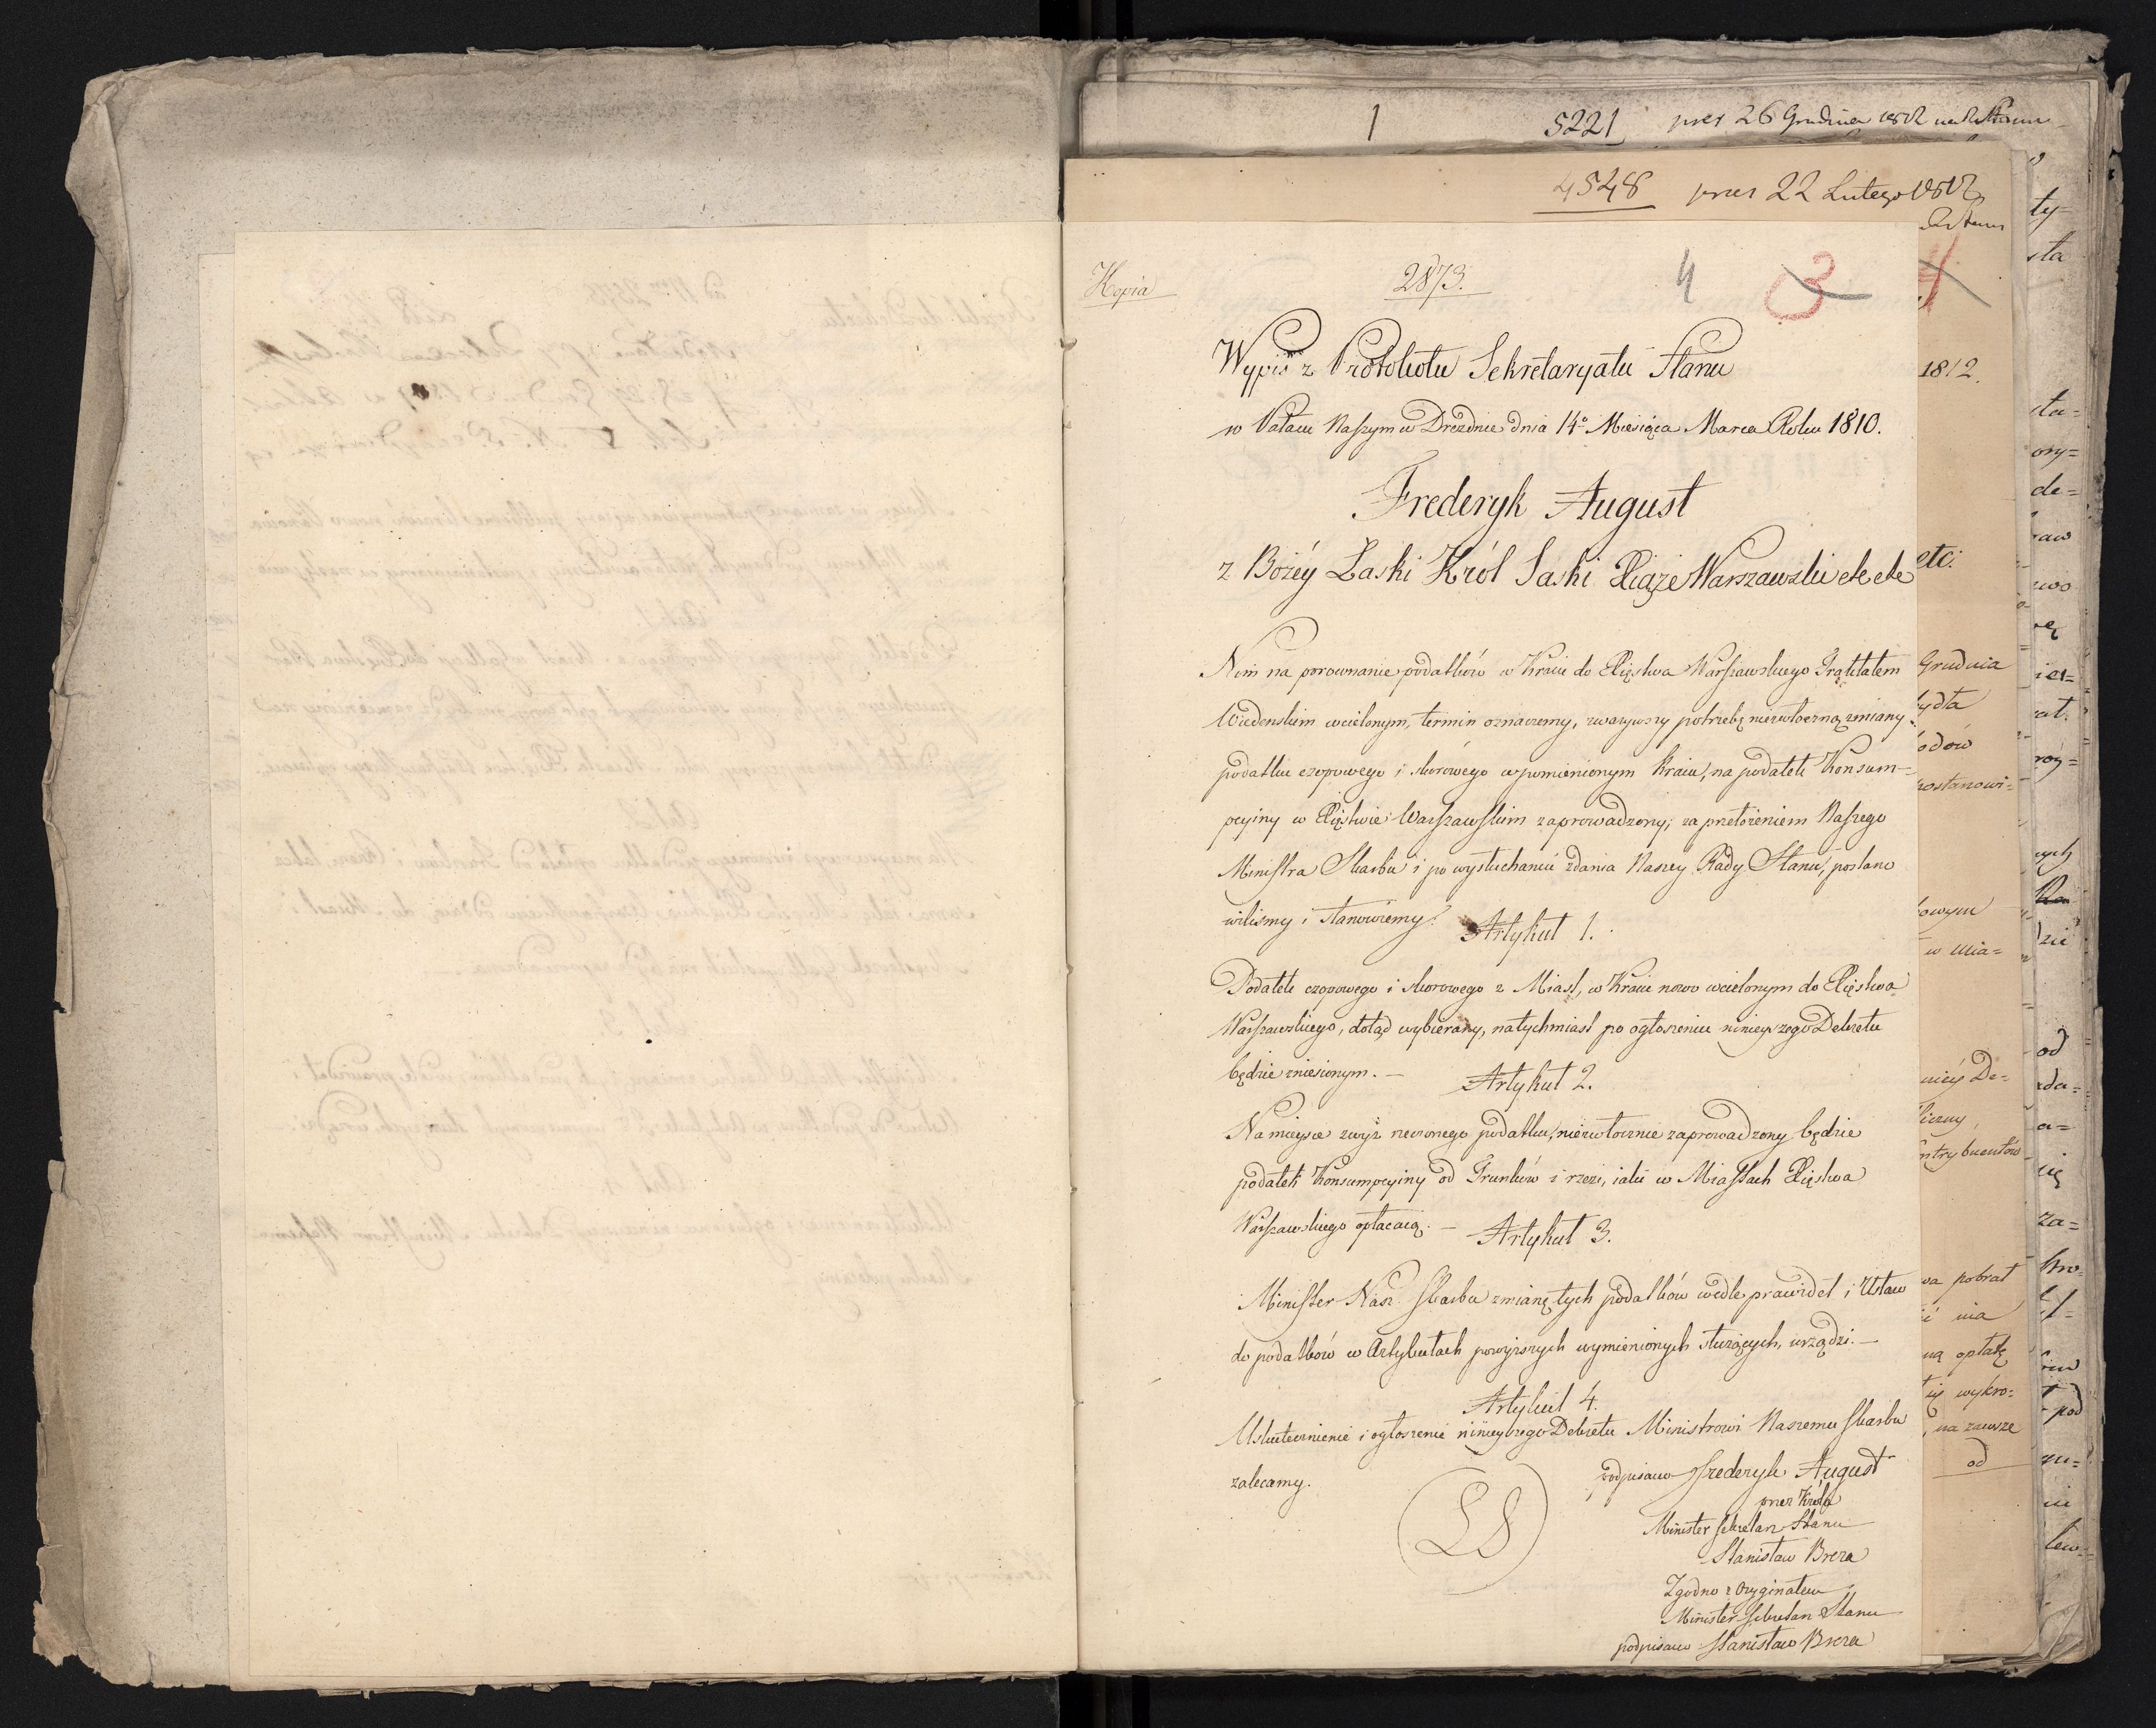 1 5221 26 Grudnia
4548 prez 22 Lutego 1812
Kopia 2873. 4 3
Wypis z Protokołu Sekretaryatu Stanu
w Pałacu Naszym w Dreźnie dnia 14º Miesiąca Marca Roku 1810.
Frederyk August
z Bożéy Łaski Król Saski Xiąże Warszawski etc etc
Nim na porownanie podatków w Kraiu do Xięstwa Warszawskiego Traktatem
Wiedenskim wcielonym, termin oznaczemy, zważywszy potrzebę niezwłoczną zmiany
podatku czopowego i skorowego wpomienionym Kraiu, na podatek Konsum-
pcyiny w Xięstwie Warszawskim zaprowadzony; za przełożeniem Naszego
Ministra Skarbu i po wysłuchaniu zdania Naszey Rady Stanu, postano
wiliśmy i stanowiemy.
Artykuł 1.
Podatek czopowego i skorowego z Miast, w Kraiu nowo wcielonym do Xięstwa
Warszawskiego, dotąd wybierany, natychmiast po ogłoszeniu ninieyszego Dekretu
będzie zniesionym. —
Artykuł 2.
Na mieysce zwyż rzeczonego podatku, niezwłocznie zaprowadzony będzie
podatek Konsumpcyiny od Trunków i rzezi, iaki w Miastach Xięstwa
Warszawskiego opłacaią. —
Artykuł 3.
Minister Nasz Skarbu zmianę tych podatków wedle prawideł i Ustaw
do podatków w Artykułach powyższych wymienionych służących, urządzi. —
Artykuł 4.
Uskutecznienie i ogłoszenie ninieyszego Dekretu Ministrowi Naszemu Skarbu
zalecamy.
LS
podpisano Frederyk August
przez Króla
Minister Sekretarz Stanu
Stanisław Breza
Zgodno z Oryginałem
Minister Sekretarz Stanu
podpisano Stanisław Breza
1812.
etc:
Grudnia
ydła
odów
postanowi=
owym
w mia=
niéy De=
liczny,
ntrybuentów
wa pobrał
ma
ną opłatę
ię wykro=
, na zawsze
od
ty=
sta
sta=
ory=
de=
raw
rat.
róż=
dzie
od
a=
za=
pod